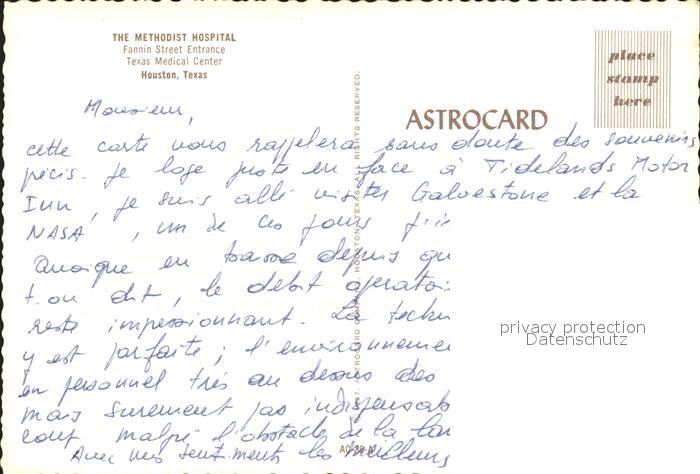 THE METHODIST HOSPITAL
Fannin Street Entrance
Texas Medical Center
Houston, Texas
place
stamp
here
ASTROCARD
Monsieur,
cette carte vous rappelera sans doute des souvenirs
précis. Je loge juste en face à Tidelands Motor
Inn, je suis allé visiter Galvestone et la
NASA, un de ces jours
Quoique en baisse depuis qu
t.on dit, le débit opératoi
reste impressionnant. La techn
y est parfaite ; l'environneme
en personnel très au dessus des
mais surement pas indispensab
cout malgré l'obstacle de la lan
Avec mes sentiments les meilleurs
ASTROCARD COMPANY, HOUSTON, TEXAS. ALL RIGHTS RESERVED.
privacy protection
Datenschutz